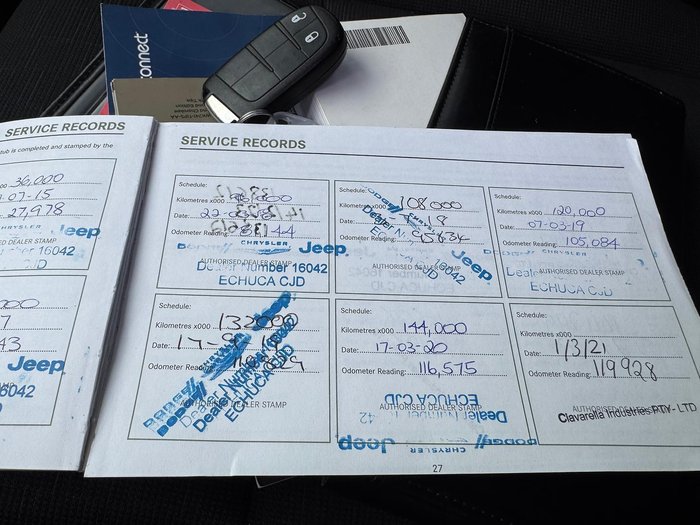 connect
SERVICE RECORDS
tub is completed and stamped by the
00 36,000
07-15
27,978
CHRYSLER
Jeep
ED DEALER STAMP
16042
CJD
Jeep
6042
SERVICE RECORDS
Schedule:
Kilometres x000
Date: 22-
Odometer Reading:
CHRYSLER Jeep
AUTHORISED DEALER STAMP
Dealer Number 16042
ECHUCA CJD
Schedule:
Kilometres x000 108000
Date: 18
Odometer Reading:
Jeep
AUTHORISED DEALER STAMP
16042
CJD
Schedule:
Kilometres x000 120,000
Date: 07-03-19
Odometer Reading: 105,084
AUTHORISED DEALER STAMP
ECHUCA CJD
Schedule:
Kilometres x000 132000
Date: 17-
Odometer Reading:
AUTHORISED DEALER STAMP
Dealer Number 16042
ECHUCA CJD
Schedule:
Kilometres x000 144,000
Date: 17-03-20
Odometer Reading: 116,575
ECHUCA CJD
AUTHORISED DEALER STAMP
Dealer Number 42
Jeep CHRYSLER DODGE
Schedule:
Kilometres x000
Date: 1/3/21
Odometer Reading: 119928
AUTHORISED DEALER STAMP
Clavarella Industries PTY - LTD
27